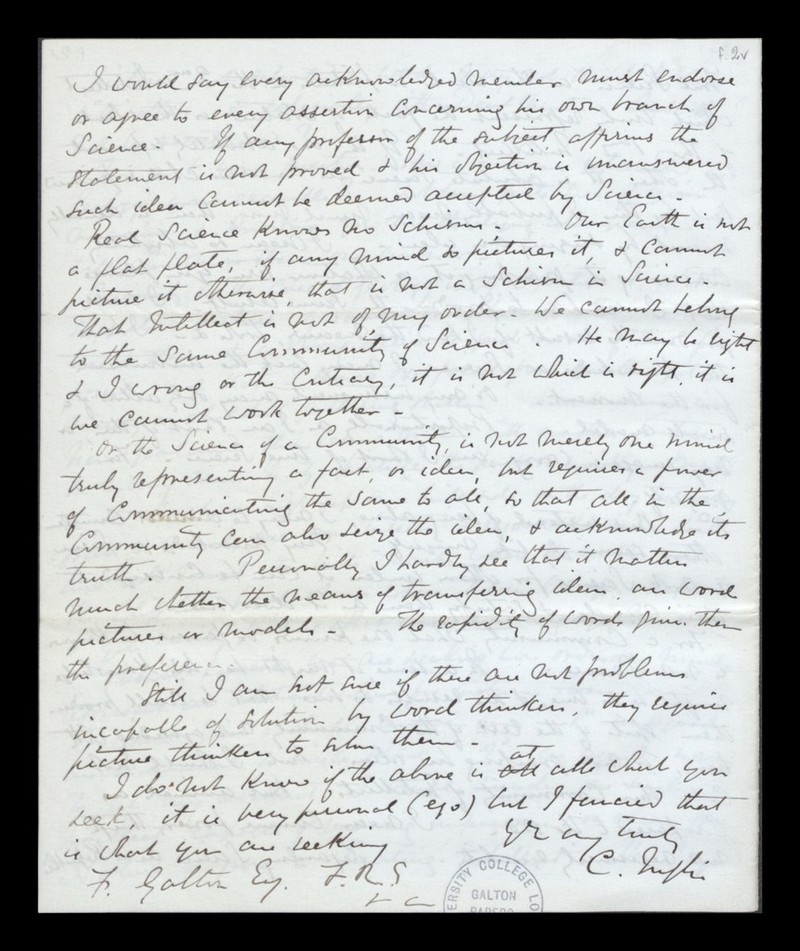 f. 2v
I would say every acknowledged member must endorse
or agree to every assertion concerning his own branch of
Science. If any professor of the subject affirms the
statement is not proved & his objection is unanswered
such idea cannot be deemed accepted by Science.
Real Science knows no Schisms. Our Earth is not
a flat plate, if any mind so pictures it, & cannot
picture it otherwise, that is not a Schism in Science.
That Intellect is not of my order. We cannot belong
to the same Community of Science. He may be right
& I wrong or the contrary, it is not which is right, it is
we cannot work together -
On the Science of a Community, is not merely one mind
truly representing a fact, or idea, but requires a power
of communicating the same to all, so that all in the
Community can also seize the idea, & acknowledge its
truth. Personally I hardly see that it matters
much whether the means of transferring ideas, are word
pictures or models - The rapidity of words gives them
the preference
Still I am not sure if there are not problems
incapable of solution by word thinkers, they require
picture thinkers to solve them -
I do not know if the above is at all what you
seek, it is very personal (ego) but I fancied that
is what you are seeking
Yrs very truly
C.
F. Galton Esq. F.R.S
UNIVERSITY COLLEGE LO
GALTON
PAPERS